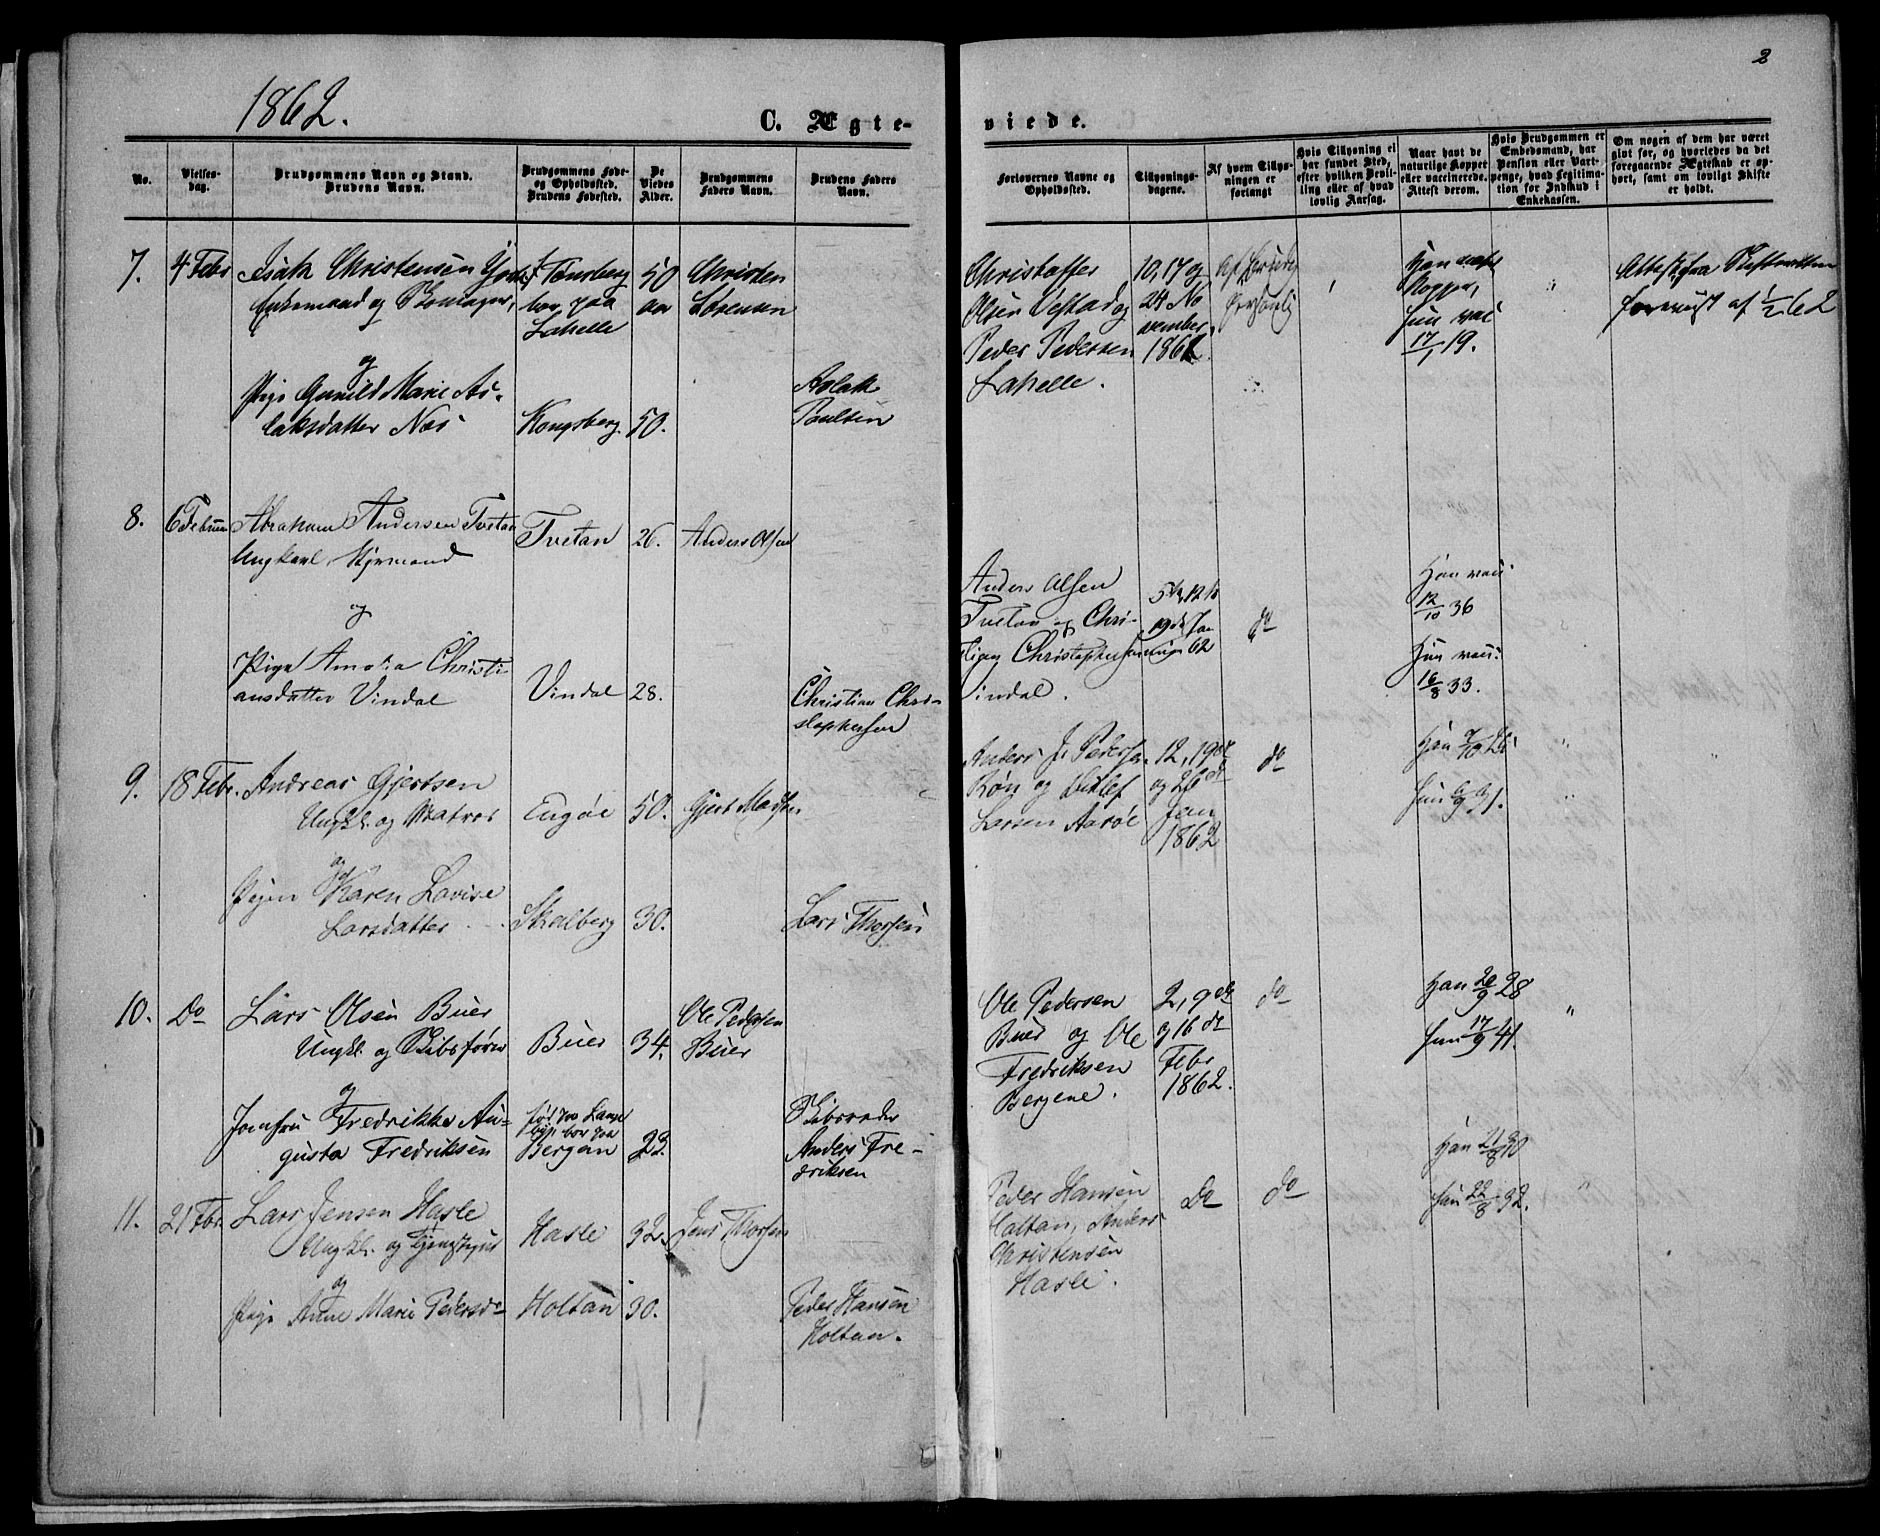 1862.
2
C. Ægte-
viede.
No.
Vielses-
dag.
Brudgommens Navn og Stand.
Brudens Navn.
Brudgommens Føde-
og Opholdssted.
Brudens Fødested.
De
Viedes
Alder.
Brudgommens
Faders Navn.
Brudens Faders
Navn.
Forlovernes Navne og
Opholdssted.
Tillysnings-
dagene.
Af hvem Tillys-
ningen er
forlangt
Hvis Tillysning ei
har fundet Sted,
efter hvilken Bevil-
ling eller af hvad
lovlig Aarsag.
Naar havt de
naturlige Kopper
eller vaccinerede.
Attest derom.
Hvis Brudgommen er
Embedsmand, har
Pension eller Vart-
penge, hvad Legitima-
tion for Indskud i
Enkekassen.
Om nogen af dem har været
gift før, og hvorledes da det
foregaaende Ægteskab er op-
hørt, samt om lovligt Skifte
er holdt.
7.
4 Febr
Isak Christensen
Enkemand og Skomager,
og
Pige Gunild Marie As-
laksdatter Næs
f Tønsberg
bor paa
Lahelle
Kongsberg.
50
aar
50.
Christen
Sørensen
Aslak
Poulsen
Christoffer
Olsen Vestad og
Peder Pedersen
Lahelle.
10, 17 og
24 No
vember
1861.
Af
personlig
Han
Kopper,
hun vac
17/1 19.
Attest fra Skifteretten
forevist af 1/2 62
8.
6 Februar
Abraham Andersen Tvetan
Ungkarl, Styrmand
og
Pige Amalia Christi
ansdatter Vindal
Tvetan
Vindal
26.
28.
Anders Olsen
Christian Chri-
stophersen
Anders Olsen
Tvetan og Chri-
stian Christophersen
Vindal.
5te, 12te
19de Ja
nuar 62
do
Han vac:
12/10 36
Hun vac:
16/8 33.
9.
18 Febr.
Andreas Gjertsen
Ungk. og Matros
og
Pigen Karen Lovise
Larsdatter
Engøe
Skalberg
50.
30.
Gjert Madsen
Lars Thorsen
Anders J. Pedersen
Røn og Ditlef
Larsen Aarøe
12, 19de
og 26de
Jan
1862
do
Han
Hun
10.
Do
Lars Olsen Buer
Ungk. og Skibsfører
og
Jomfru Fredrikke Au-
gusta Fredriksen
Buer
fød paa
bor paa
Bergan
34.
23.
Ole Pedersen
Buer
Skibsreder
Anders Fre-
driksen
Ole Pedersen
Buer og Ole
Fredriksen
Bergene.
2, 9de
og 16de
Febr
1862.
do
Han 20/9 28
Hun 17/9 41.
11.
21 Fbr
Lars Jensen Hasle
Ungk. og
og
Pige Anne Marie Pedersd-
Hasle
Holtan
32.
30.
Jens Thorsen
Peder Hansen
Holtan.
Peder Hansen
Holtan, Anders
Christensen
Hasle.
Do
do
Han 21/8
Hun 22/8 32.